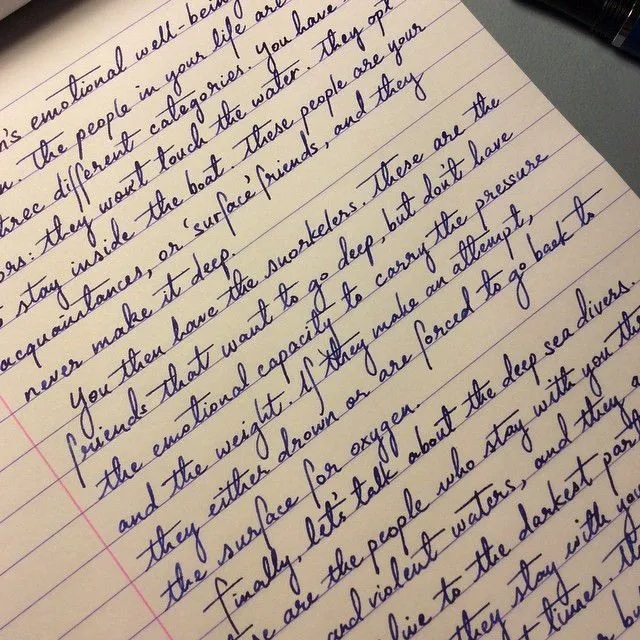 's emotional well-being
The people in your life are
different catagories. You have
: they won't touch the water. They opt
stay inside the boat. These people are your
acquaintances, or 'surface' friends, and they
never make it deep.
You then have the snorkelers. These are the
friends that want to go deep, but don't have
the emotional capacity to carry the pressure
and the weight. If they make an attempt,
they either drown or are forced to go back to
the surface for oxygen.
Finally, let's talk about the deep sea divers.
are the people who stay with you
and violent waters, and they
to the darkest
they stay with you
times.